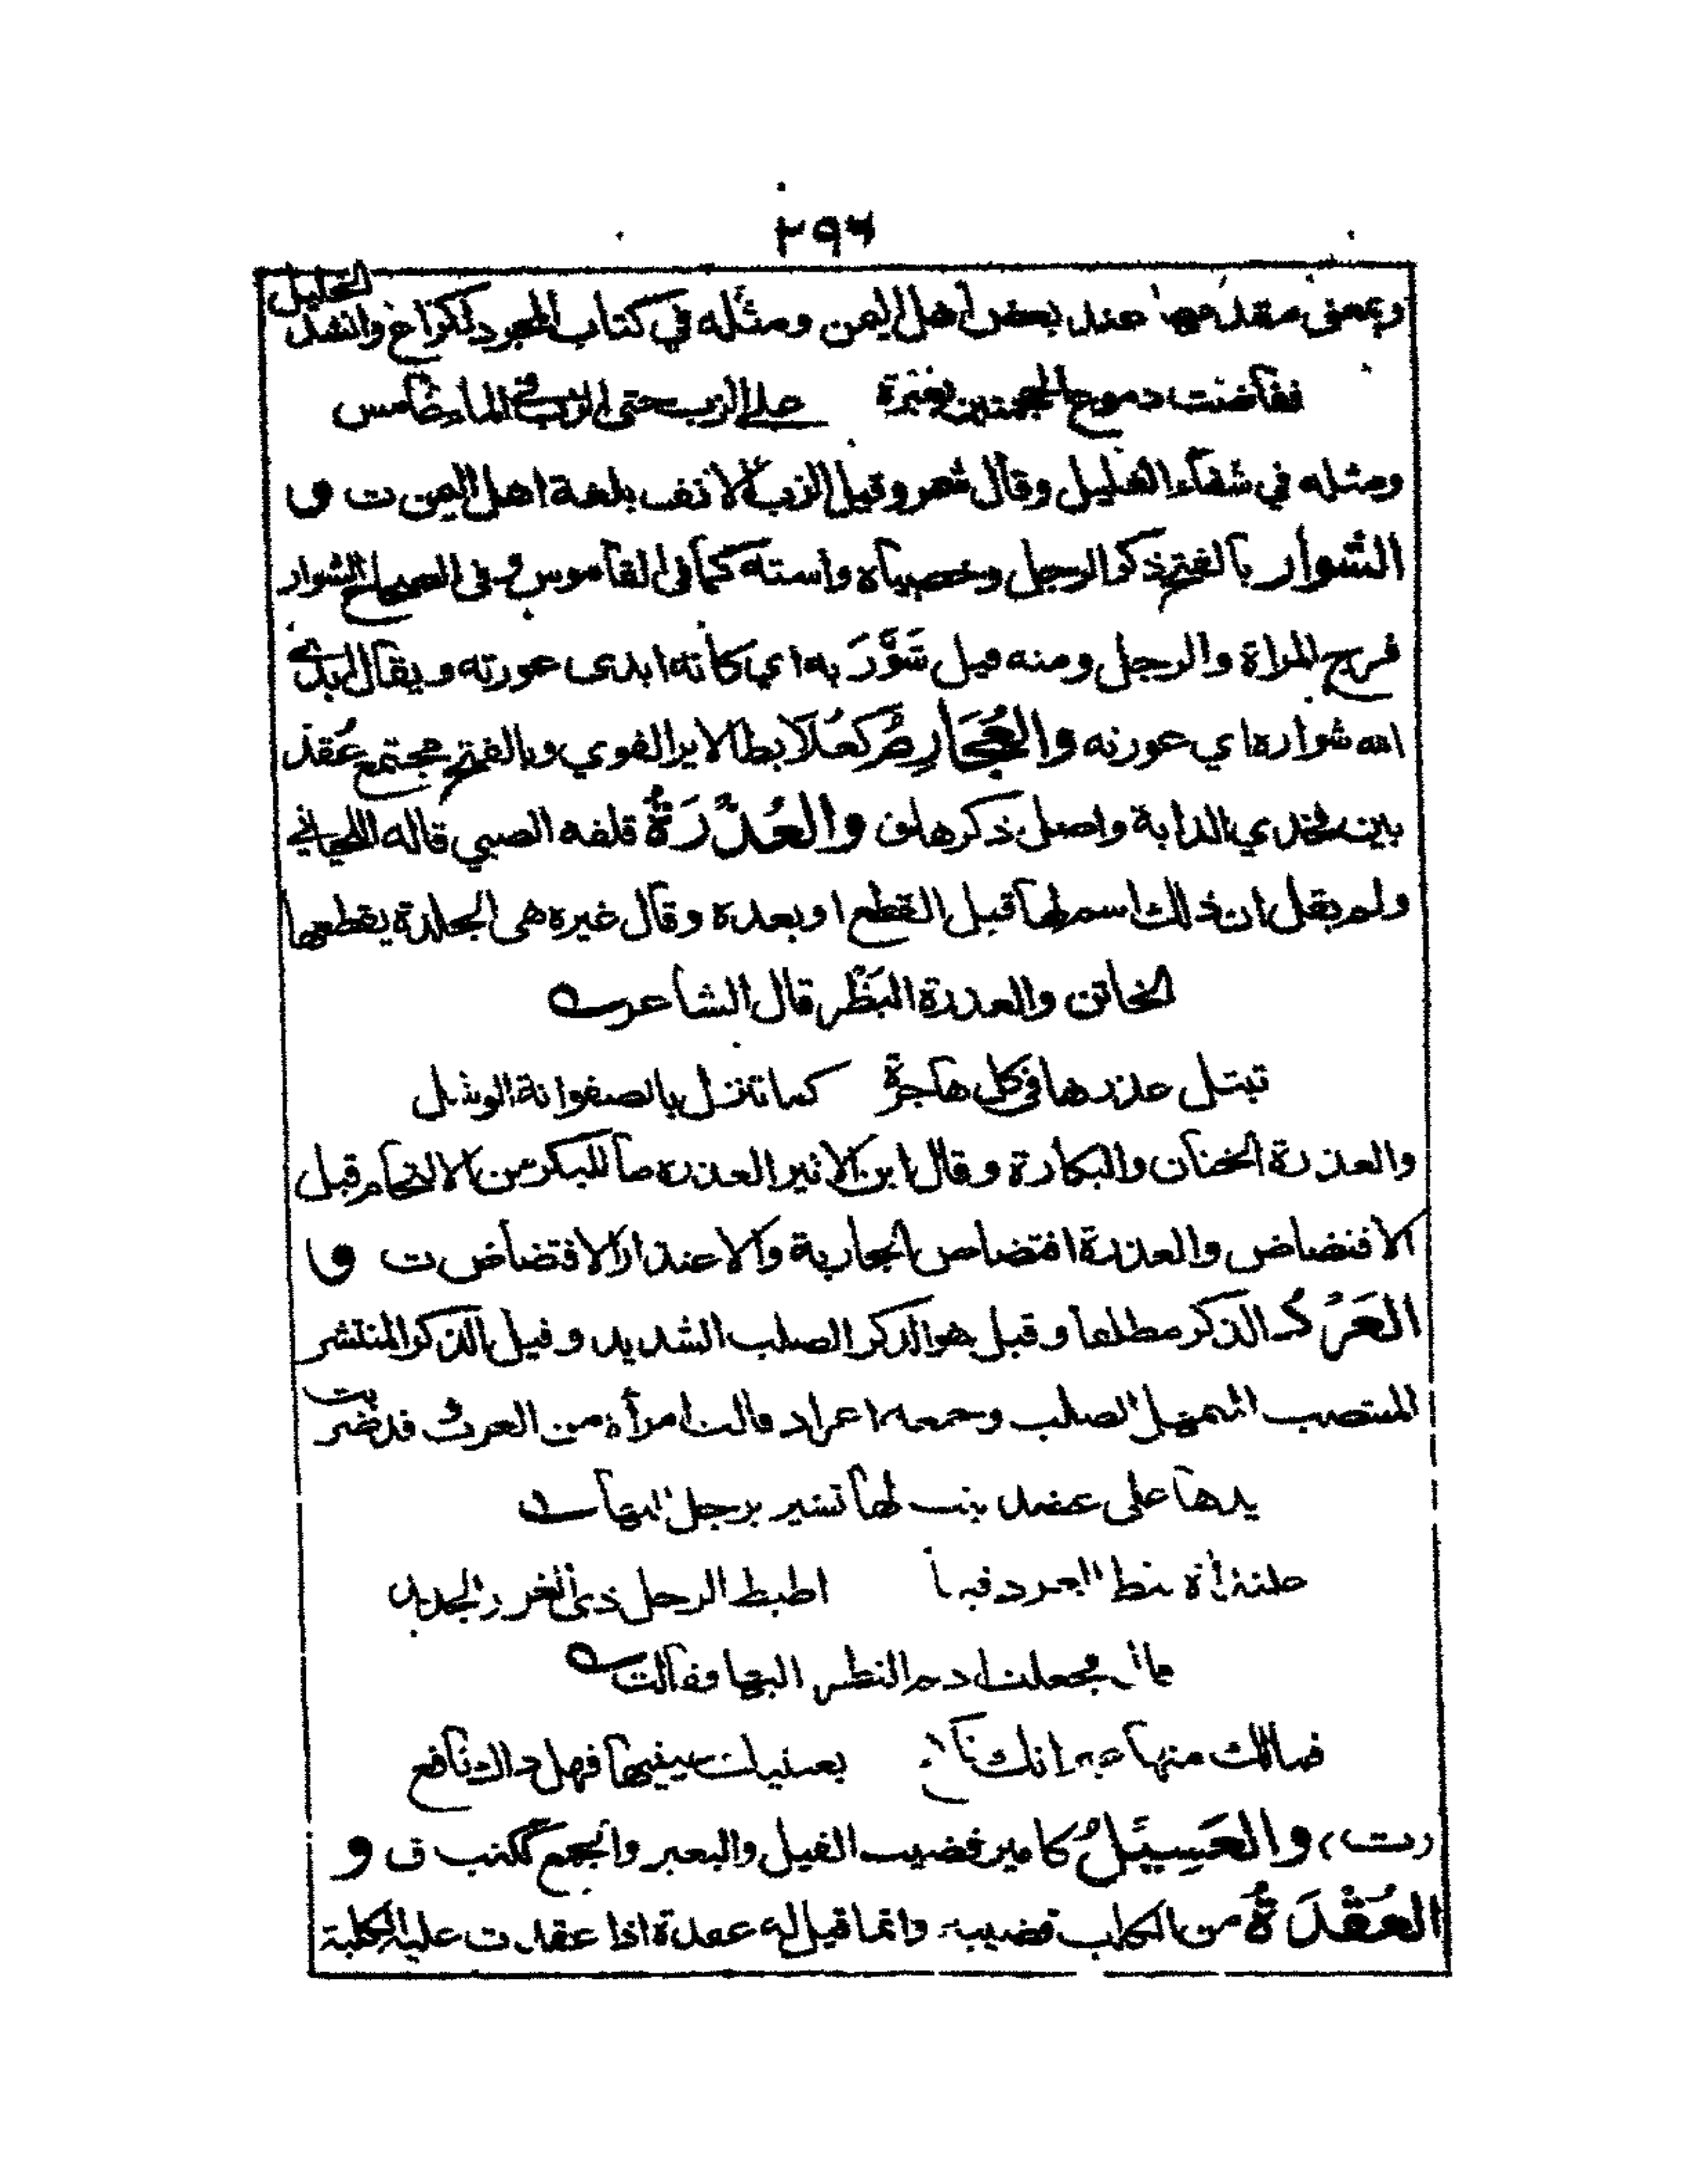 ٢٩٦
وبمعنى مقدمها عند بعض أهل اليمن ومثله في كتاب المجرد لكراع وانشد الخليل
ففاضت دموع الجحمتين بعبرة على الزب حتى الزب في الماء غامس
ومثله في شفاء الغليل وقال شمر وقيل الزب الانف بلغة اهل اليمن ت و
الشوار بالفتح ذكر الرجل وخصياه واسته كما في القاموس وفي الصحاح الشوار
فرج المراة والرجل ومنه قيل شَوَّرَ به اي كانه ابدى عورته ويقال ابدى
الله شواره اي عورته والعُجَارِمُ كعُلابط الاير القوي وبالفتح مجتمع عُقد
بين فخذي الدابة واصل ذكرها ق والعُذْرَةُ قلفه الصبي قاله اللحياني
ولم يقل ان ذلك اسم لها قبل القطع او بعده وقال غيره هي الجلدة يقطعها
الخاتن والعذرة البَظْر قال الشاعر
تبتل عذرها في كل هاجرة كما تنزل بالصفوانة الوشل
والعذرة الختان والبكارة وقال ابن الاثير العذرة ما للبكر من الالتحام قبل
الافتضاض والعذرة افتضاض الجارية والاعتذار الافتضاض ت و
العَرْدُ الذكر مطلقا وقيل هو الذكر الصلب الشديد وقيل الذكر المنتشر
المنتصب المتمهل الصلب وجمعه اعراد قالت امرأة من العرب قد ضربت
يدها على عضد بنت لها تشير برجل اليها
علنداة يئط العرد فيها اطيط الرحل ذي الغرز الجديد
قال فجعلت اديم النظر اليها فقالت
فمالك منها غير انك ناكح بعينيك عينيها فهل ذاك نافع
(ت) والعَسِيْلُ كامير قضيب الفيل والبعير والجمع ككتب ق و
العُقْدَةُ من الكلب قضيبه وانما قيل له عقدة اذا عقدت عليه الكلبة